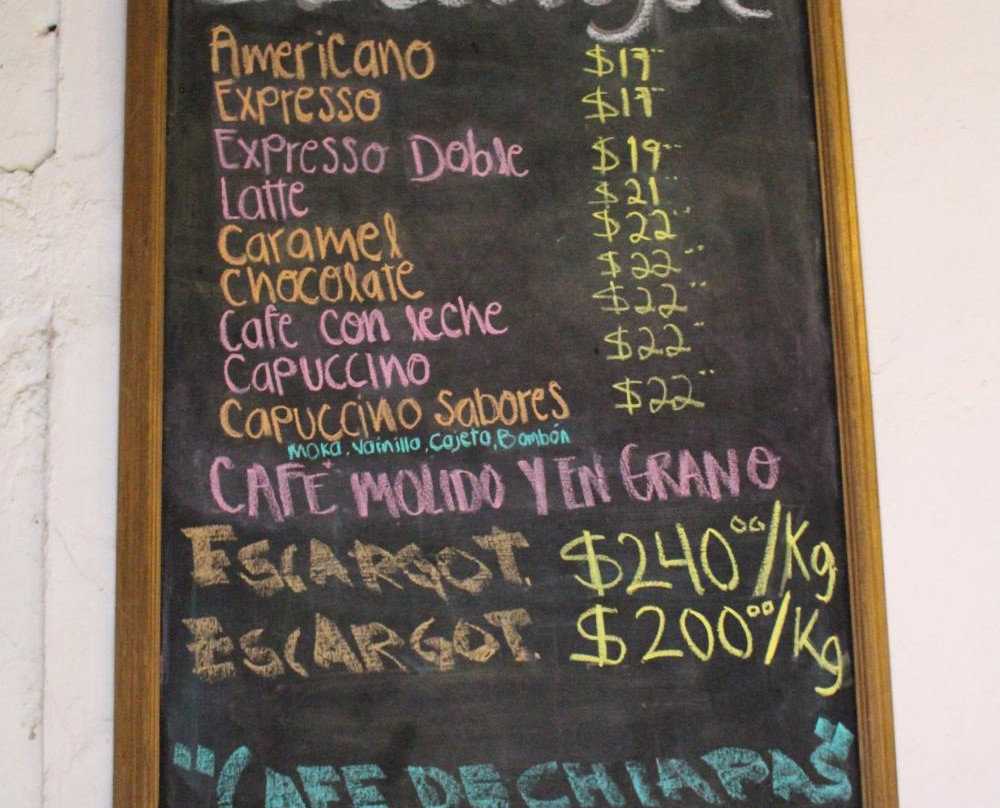 Americano $17
Expresso $17
Expresso Doble $19
Latte $21
Caramel $22
Chocolate $22
Cafe con leche $22
Capuccino $22
Capuccino Sabores $22
Moka, Vainilla, Cajeta, Bombón
CAFÉ MOLIDO Y EN GRANO
ESCARGOT. $240⁰⁰/Kg
ESCARGOT. $200⁰⁰/Kg
"CAFE DE CHIAPAS"